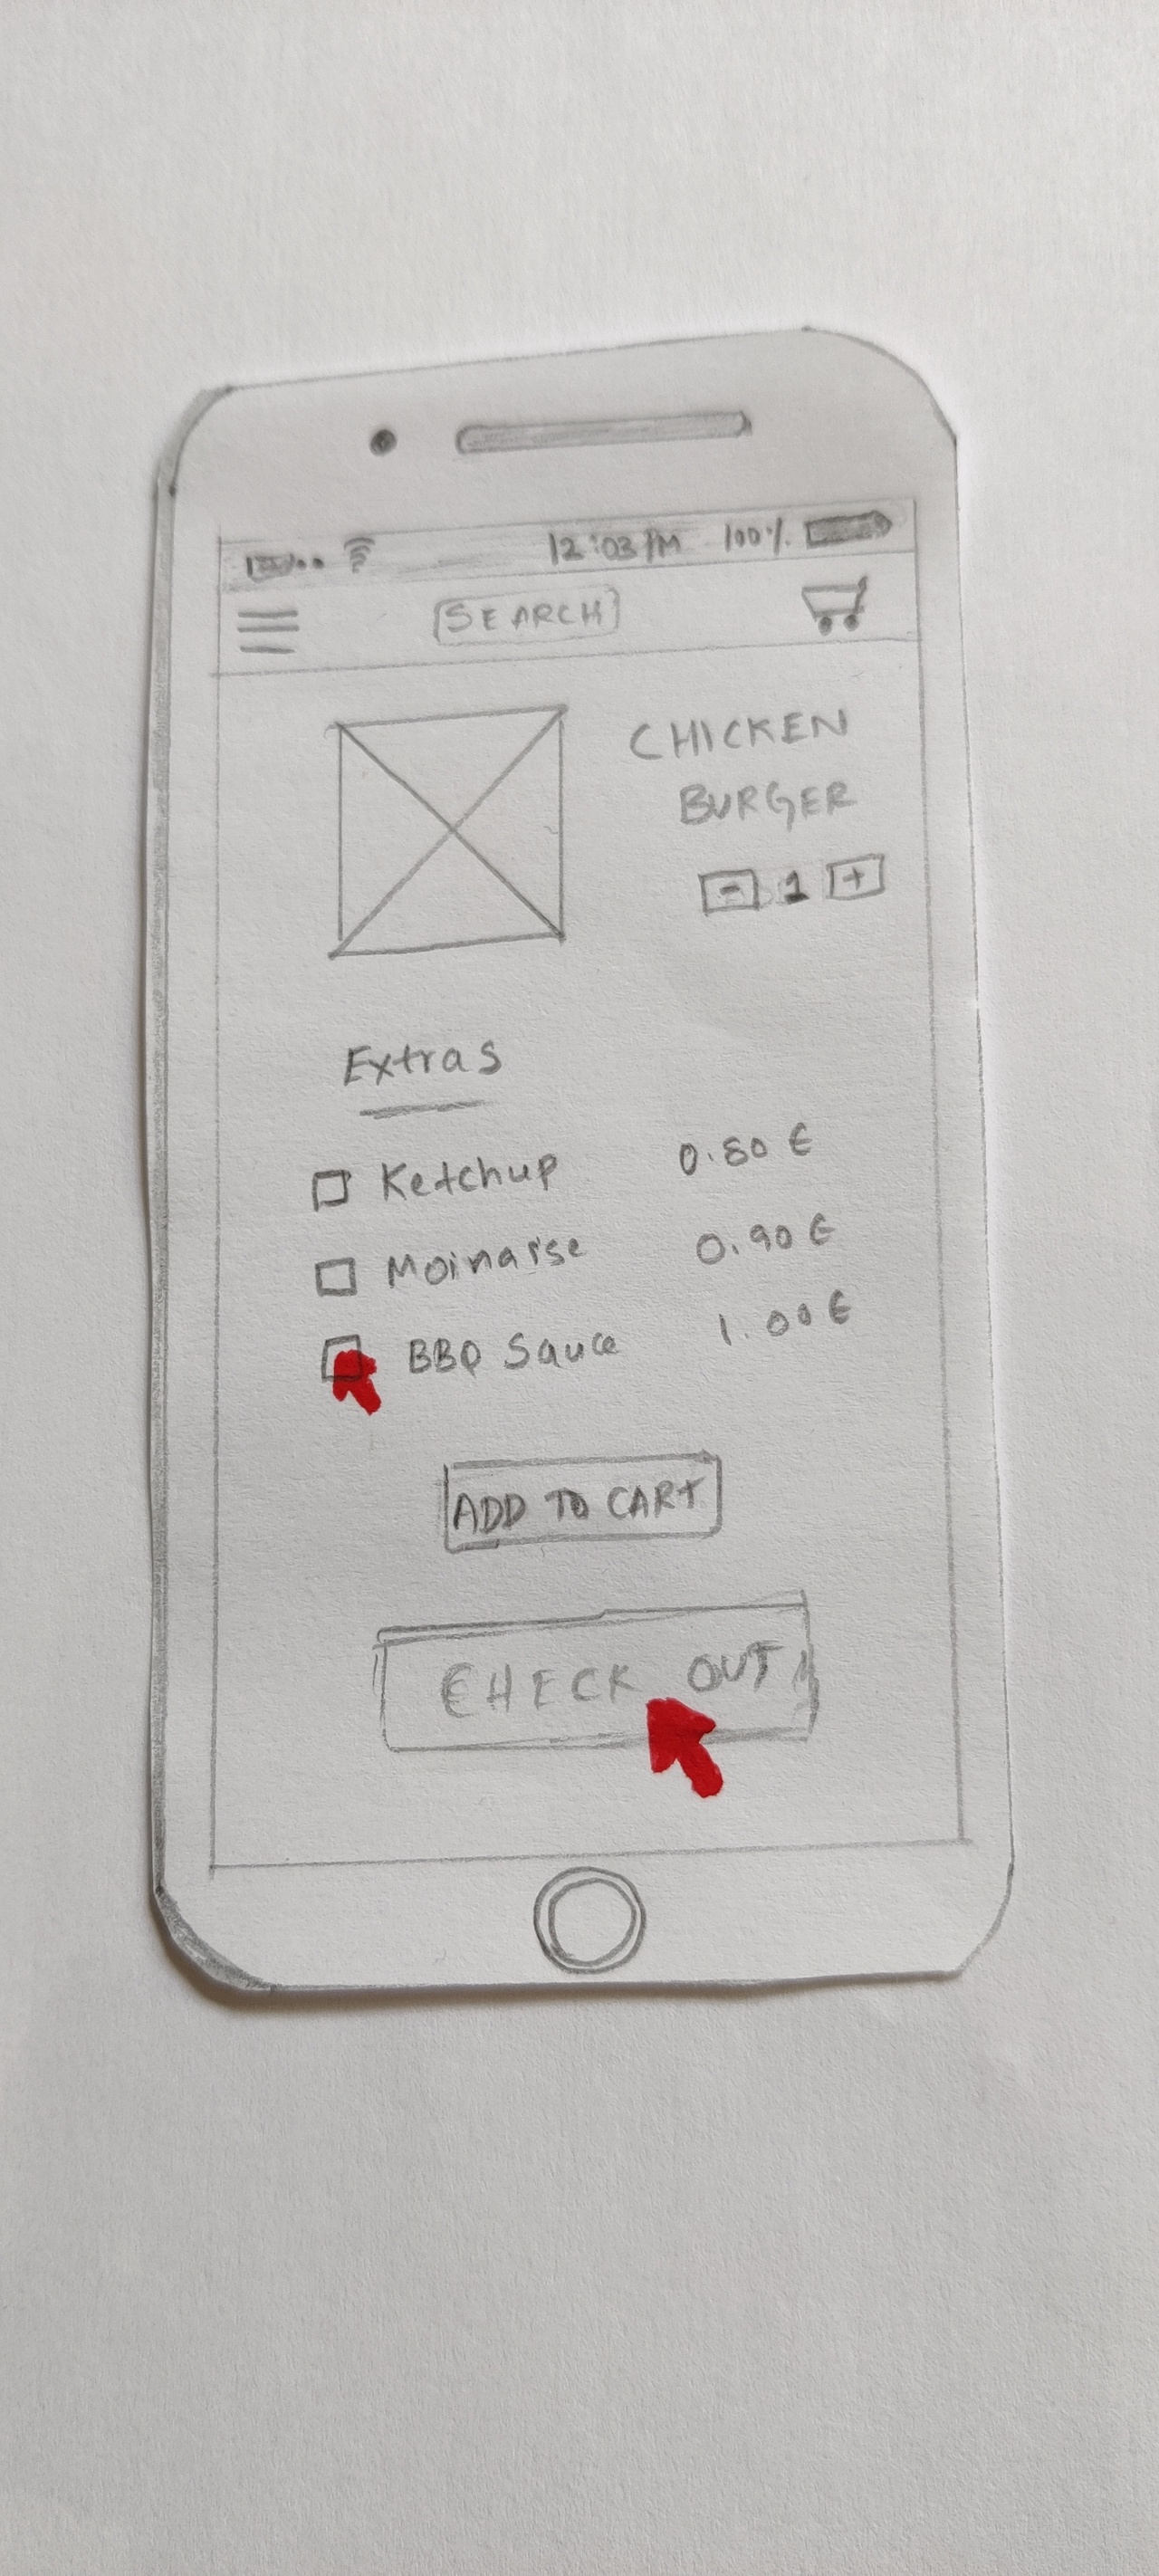 12:03 PM 100%
SEARCH
CHICKEN
BURGER
- 1 +
Extras
Ketchup 0.80 €
Moinaise 0.90 €
BBQ Sauce 1.00 €
ADD TO CART
CHECK OUT